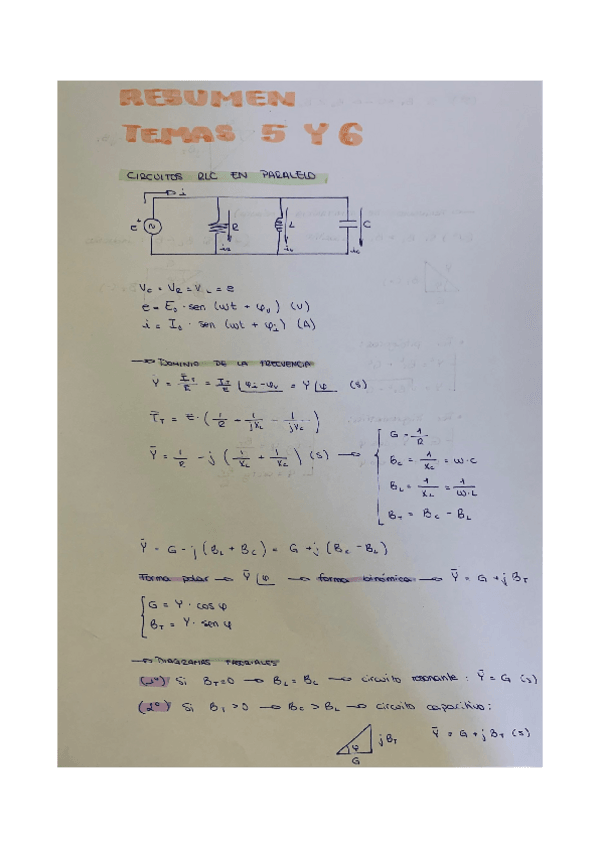 RESUMEN
TEMAS 5 Y 6
CIRCUITOS RLC EN PARALELO
i
e + R L C
i_R i_L i_C
V_C = V_R = V_L = e
e = E_0 · sen (wt + φ_v) (V)
i = I_0 · sen (wt + φ_i) (A)
→ DOMINIO DE LA FRECUENCIA
Ȳ = Ī_T / Ē = I_T / E |φ_i - φ_v = Y |φ (S)
Ī_T = Ē · ( 1/R + 1/jX_L - 1/jX_C )
Ȳ = 1/R - j ( 1/X_L + 1/X_C ) (S) →
G = 1/R
B_C = 1/X_C = W · C
B_L = 1/X_L = 1/W·L
B_T = B_C - B_L
Ȳ = G - j (B_L + B_C) = G + j (B_C - B_L)
Forma polar → Ȳ |φ → forma binómica → Ȳ = G + j B_T
G = Y · cos φ
B_T = Y · sen φ
→ DIAGRAMAS FASORIALES
(1º) Si B_T = 0 → B_L = B_C → circuito resonante : Ȳ = G (S)
(2º) Si B_T > 0 → B_C > B_L → circuito capacitivo:
φ jB_T Ȳ = G + j B_T (S)
G